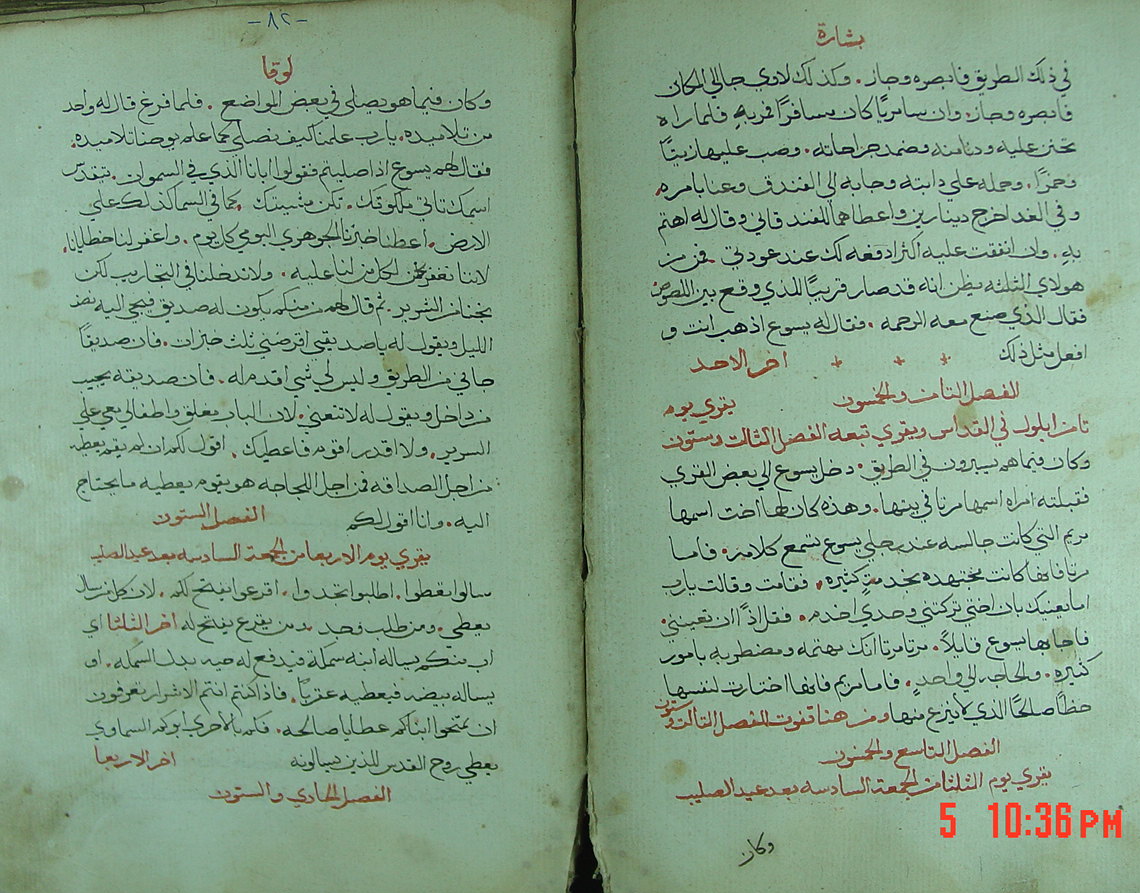 بشارة
في ذلك الطريق فابصره وجاز. وكذلك لاوي جا الي المكان
فابصره وجاز. وان سامريًا كان مسافرًا فمر به. فلما راه
تحنن عليه ودنا منه وضمد جراحاته. وصب عليها زيتًا
وخمرًا. وحمله علي دابته وجا به الي الفندق وعنا بامره.
وفي الغد اخرج دينارين واعطاهما للفندقاني وقال له اهتم
به. وان انفقت عليه اكثر ادفعه لك عند عودتي. فمن من
هولاي الثلثه يظن انه قد صار قريبًا للذي وقع بين اللصوص
فقال الذي صنع معه الرحمه. فقال له يسوع اذهب انت و
افعل مثل ذلك اخر الاحد
الفصل الثامن والخمسون يقري يوم
ثامن ايلول في القداس ويقري تبعه الفصل الثالث وستون
وكان فيما هم يسيرون في الطريق. دخل يسوع الي بعض القري
فقبلته امراه اسمها مرتا في بيتها. وهذه كان لها اخت اسمها
مريم التي كانت جالسه عند رجلي يسوع تسمع كلامه. فاما
مرتا فانها كانت مجتهده بخدمةٍ كثيره. فقامت وقالت يارب
اما يعنيك بان اختي تركتني وحدي اخدم. فقل لها ان تعينني.
فاجابها يسوع قايلاً. مرتا مرتا انك مهتمه ومضطربه بامور
كثيره. والحاجه الي واحدٍ. فاما مريم فانها اختارت لنفسها
حظًا صالحًا الذي لا ينزع منها ومن هنا تفوت للفصل الثالث وستون
الفصل التاسع والخمسون
يقري يوم الثلثا من الجمعة السادسه بعد عيد الصليب
وكان
5 10:36 PM
-٨٢-
لوقا
وكان فيما هو يصلي في بعض المواضع. فلما فرغ قال له واحد
من تلاميذه. يارب علمنا كيف نصلي كما علم يوحنا تلاميذه.
فقال لهم يسوع اذا صليتم فقولوا ابانا الذي في السموات. يتقدس
اسمك تاتي ملكوتك. تكن مشيتك. كما في السما كذلك علي
الارض. اعطنا خبزنا الجوهري اليومي كل يوم. واغفر لنا خطايانا.
لاننا نغفر نحن لكل من لنا عليه. ولا تدخلنا في التجاريب لكن
نجنا من الشرير. ثم قال لهم من منكم يكون له صديق فيجي اليه نصف
الليل ويقول له يا صديقي اقرضني ثلث خبزات. فان صديقًا
جاني من الطريق وليس لي شي اقدم له. فان صديقه يجيب
من داخل ويقول له لا تتعبني. لان الباب مغلق واطفالي معي علي
السرير. ولا اقدر اقوم فاعطيك. اقول لكم ان لم يقم يعطه
من اجل الصداقه فمن اجل اللجاجه هو يقوم يعطيه ما يحتاج
اليه. وانا اقول لكم الفصل الستون
يقري يوم الاربعا من الجمعة السادسه بعد عيد الصليب
سالوا تعطوا. اطلبوا تجدوا. اقرعوا يفتح لكم. لان كل من سال
يعطي. ومن طلب وجد. ومن يقرع يفتح له اخر الثلثا اي
اب منكم يساله ابنه سمكة فيدفع له حيه بدل السمكه. او
يساله بيضه فيعطيه عقربًا. فاذا كنتم انتم الاشرار تعرفون
ان تمنحوا ابناكم عطايا صالحه. فكم بالاحري ابوكم السماوي
يعطي روح القدس للذين يسالونه اخر الاربعا
الفصل الحادي والستون